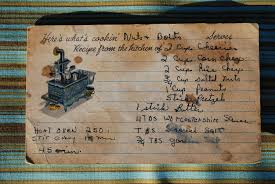 Here's what's cookin' Nuts & Bolts Serves
Recipe from the kitchen of 2 Cup Cheerios
2 Cup Corn Chex
2 Cup Rice Chex
3/4 Cup Salted Nuts
1 Cup Peanuts
Stick Pretzels
1 stick Butter
4 TBS Worcestershire Sauce
1 TBS Salt
3/4 TBS
HEAT OVEN 250.
STIR every 15 min.
45 min.